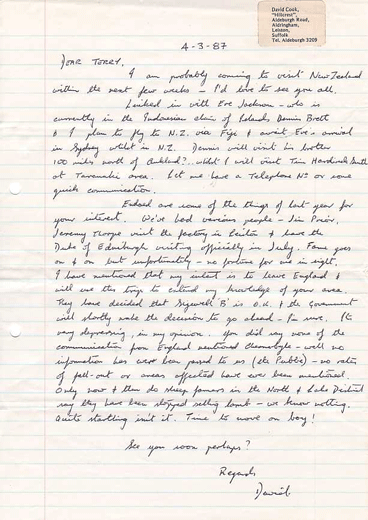 David Cook,
"Hillcrest",
Aldeburgh Road,
Aldringham,
Leiston,
Suffolk
Tel. Aldeburgh 3209
4-3-87
DEAR TORRY,
I am probably coming to visit New Zealand
within the next few weeks – I'd love to see you all.
Linked in with Eve Jackson – who is
currently in the Indonesian chain of Islands, Dennis Brett
& I plan to fly to N.Z. via Fiji & await Eve's arrival
in Sydney whilst in N.Z. Dennis will visit his brother
100 miles north of Auckland?.. whilst I will visit Tim
at Taranaki area. Let me have a Telephone No or some
quick communication.
Enclosed are some of the things of last year for
your interest. We've had various people – Jim Prior,
Jeremy Thorpe visit the factory in Leiston & have the
Duke of Edinburgh visiting officially in July. Fame goes
on & on but unfortunately – no fortune for me in sight.
I have mentioned that my intent is to leave England &
will use this trip to extend my knowledge of your area.
They have decided that Sizewell 'B' is O.K. & the Government
will shortly make the decision to go ahead – I'm sure. Its
very depressing, in my opinion. You did say none of the
communication from England mentioned Chernobyl – well no
information has ever been passed to us (the Public) – no rates
of fall-out or areas affected have ever been mentioned.
Only now & then do sheep farmers in the North & Lake District
say they have been stopped selling lamb – we know nothing.
Quite startling isn't it. Time to move on boy!
See you soon perhaps?
Regards
David.